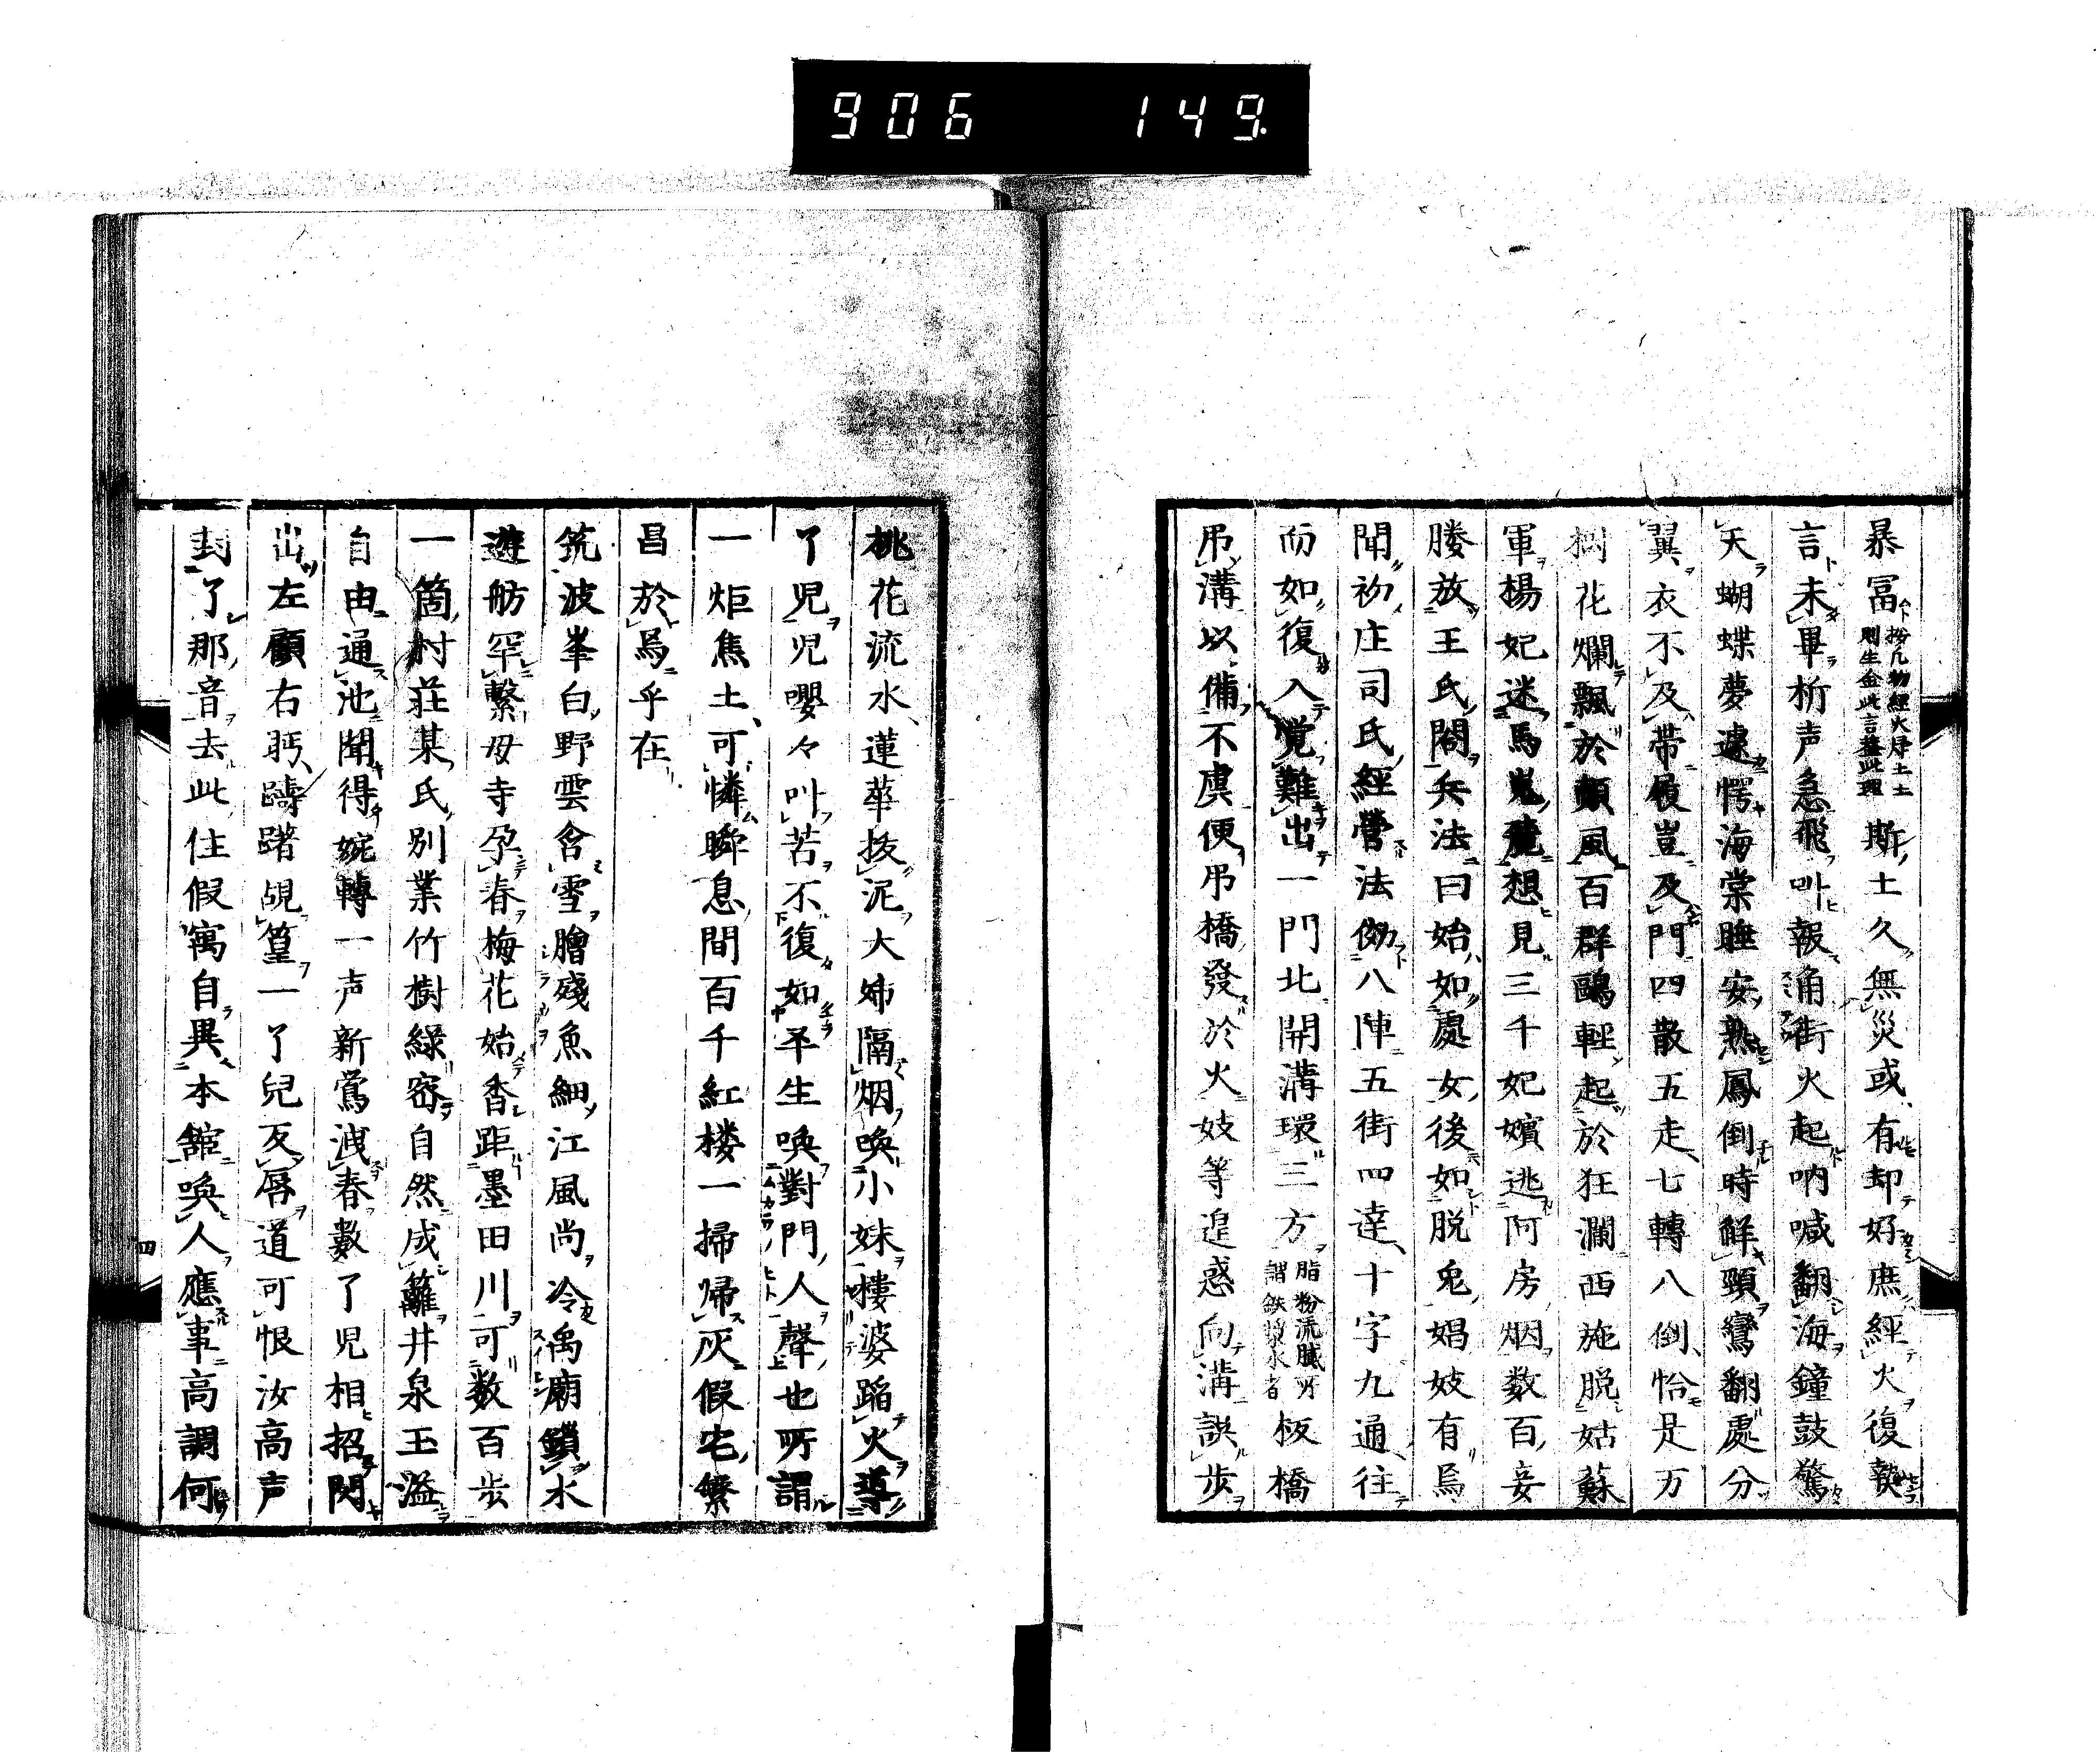 906 149.
暴冨 按凡物經火歸土土則生金此言蓋此理 斯土久無災或有却好庶經火復熱
言未畢析声急飛叫報角街火起吶喊翻海鐘鼓驚
天蝴蝶夢遽愕海棠睡安熟鳳倒時鮮頸鸞翻處分
翼衣不及帯履豈及門四散五走七轉八倒恰是万
樹花爛飄於顛風百群鷗輕起於狂瀾西施脱姑蘇
軍楊妃迷馬嵬魔想見三千妃嬪逃阿房烟数百妾
媵放王氏閣兵法曰始如處女後如脱兎娼妓有焉
聞初庄司氏經營法倣八陣五街四逹十字九通往
而如復入覚難出一門北開溝環三方 脂粉流膩所謂鉄漿水者 板橋
吊溝以備不虞便吊橋發於火妓等追惑向溝誤歩
桃花流水蓮華抜泥大姉隔烟喚小妹楼婆蹈火導
了児児嚶々叫苦不復如平生喚對門人聲也所謂
一炬焦土可憐瞬息間百千紅楼一掃帰灰假宅繁
昌於焉乎在
筑波峯白野雲含雪膾殘魚細江風尚冷禹廟鎖水
遊舫罕繋母寺孕春梅花始香距墨田川可数百歩
一箇村荘某氏別業竹樹緑密自然成籬井泉玉溢
自由通池聞得婉轉一声新鶯洩春數了児相招閃
出左顧右眄躊躇覘篁一了兒反唇道可恨汝高声
封了那音去此住假寓自異本舘喚人應事高調何
四